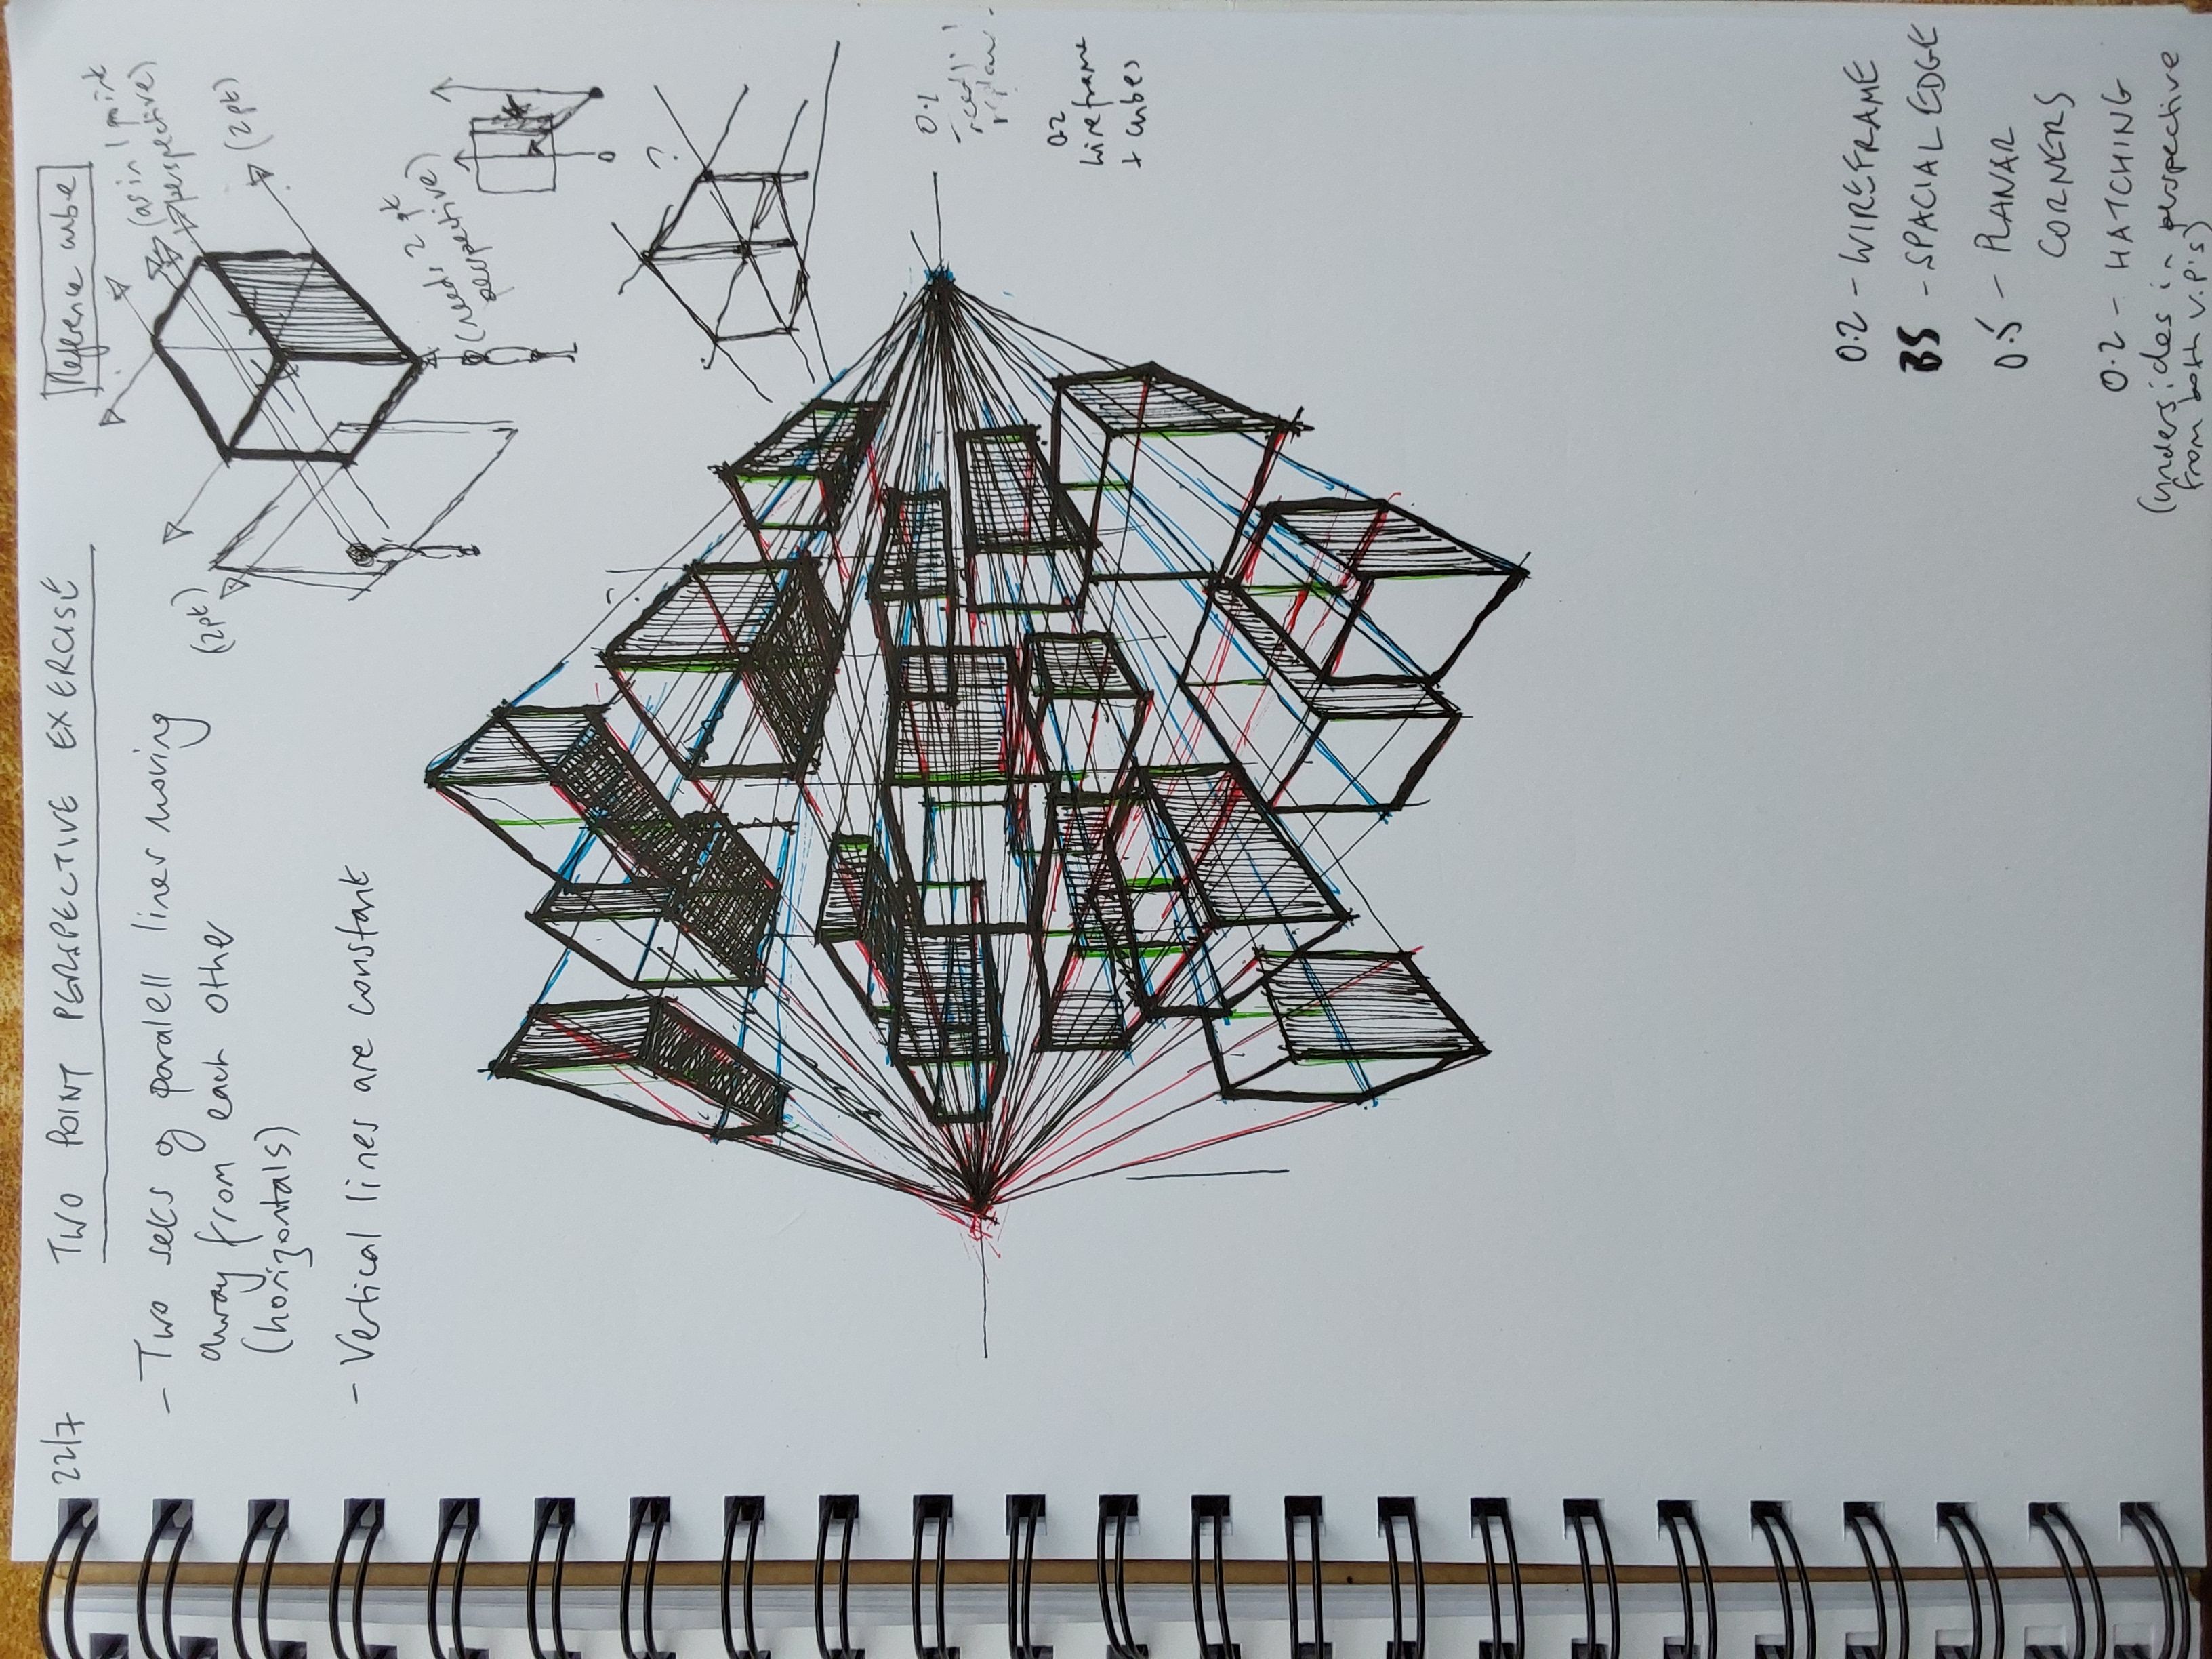 22/7 TWO POINT PERSPECTIVE EXERCISE
- Two sets of paralell lines moving
away from each other
(horizontals)
- Vertical lines are constant
Reference cube
(as in 1 point
perspective)
(2pt)
(2pt)
(needs 2 pt
perspective)
?
0.1
0.2
wireframe
+ cubes
0.2 - WIREFRAME
BS - SPACIAL EDGE
0.5 - PLANAR
CORNERS
0.2 - HATCHING
(undersides in perspective
from both v.p's)